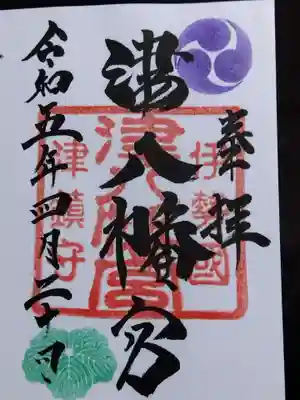 奉拝
伊勢國
津八幡宮
津八幡宮
津鎮守
令和五年四月二十四日